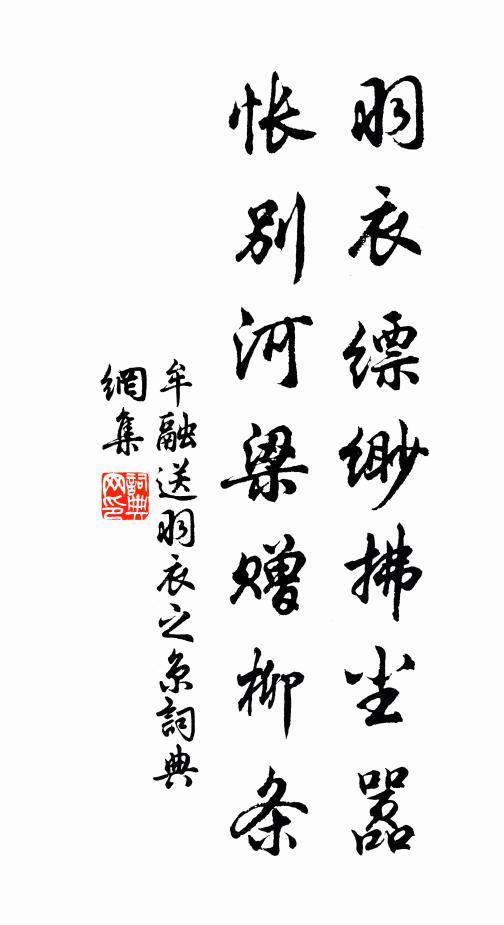 羽衣缥缈拂尘嚣
怅别河梁赠柳条
牟融送羽衣之京詞典
網集
詞典
网印